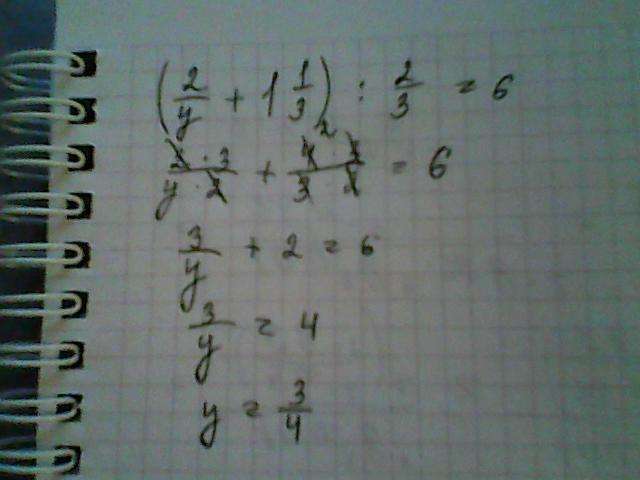 (2/y + 1 1/3) : 2/3 = 6
2·3/y·2 + 4·3/3·2 2 = 6
3/y + 2 = 6
3/y = 4
y = 3/4